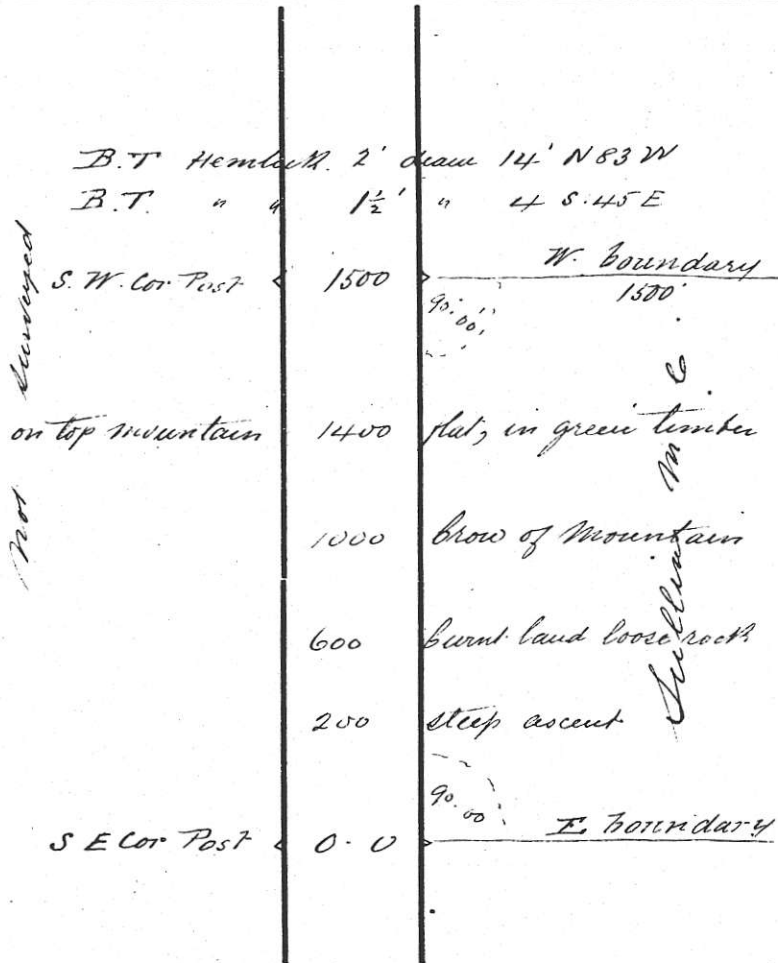 B.T Hemlock. 2' diam 14' N 83 W
B.T. " " 1½' " 4 S. 45 E
S. W. Cor Post 1500 W. boundary
1500'
90°.00'
on top mountain 1400 flat, in green timber
1000 brow of Mountain
600 burnt land loose rock
200 steep ascent
90.00
S E Cor Post 0.0 E boundary
Not Surveyed
M. C.